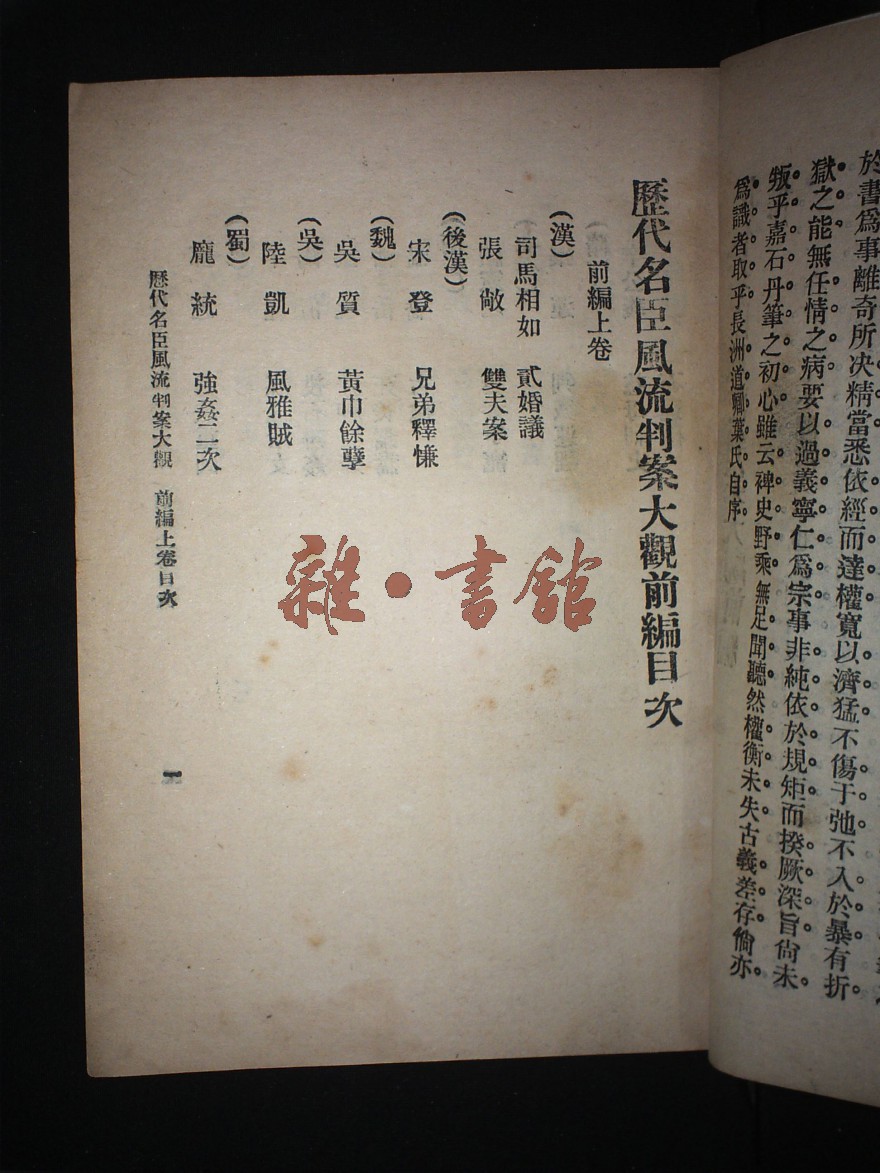 於書爲事離奇所决精當悉依經而達權寬以濟猛不傷于弛不入於暴有折
獄之能無任情之病要以過義寧仁爲宗事非純依於規矩而揆厥深旨尙未
叛乎嘉石丹筆之初心雖云裨史野乘無足聞聽然權衡未失古義差存倘亦
爲識者取乎長洲道卿葉氏自序
歷代名臣風流判案大觀前編目次
前編上卷
(漢)
司馬相如 貳婚議
張敞 雙夫案
(後漢)
宋登 兄弟釋慊
(魏)
吳質 黃巾餘孽
(吳)
陸凱 風雅賊
(蜀)
龐統 強姦二次
歷代名臣風流判案大觀 前編上卷目次
一
雜·書館